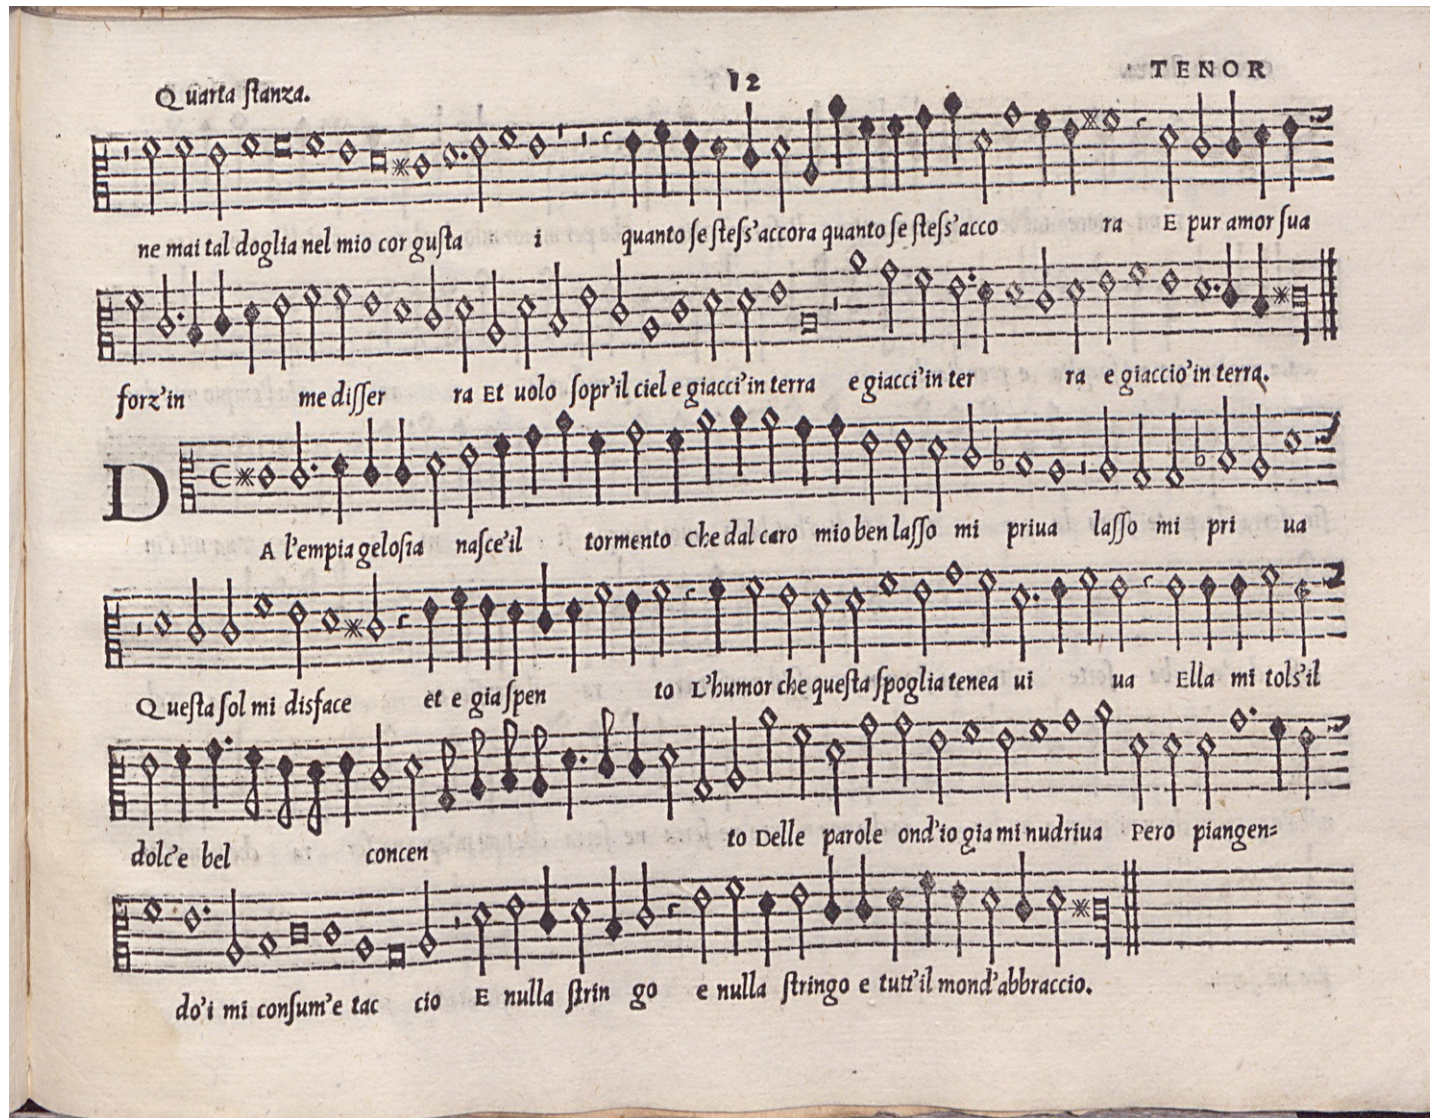 Quarta ſtanza.
12
TENOR
ne mai tal doglia nel mio cor guſta i quanto ſe ſteſs'accora quanto ſe ſteſs'acco ra E pur amor ſua
forz'in me diſſer ra Et uolo ſopr'il ciel e giacci'in terra e giacci'in ter ra e giaccio'in terra.
DA l'empia geloſia naſce'il tormento Che dal caro mio ben laſſo mi priua laſſo mi pri ua
Queſta ſol mi disface et e gia ſpen to L'humor che queſta ſpoglia tenea ui ua Ella mi tolſ'il
dolc'e bel concen to Delle parole ond'io gia mi nudriua Pero piangen=
do'i mi conſum'e tac cio E nulla ſtrin go e nulla ſtringo e tutt'il mond'abbraccio.